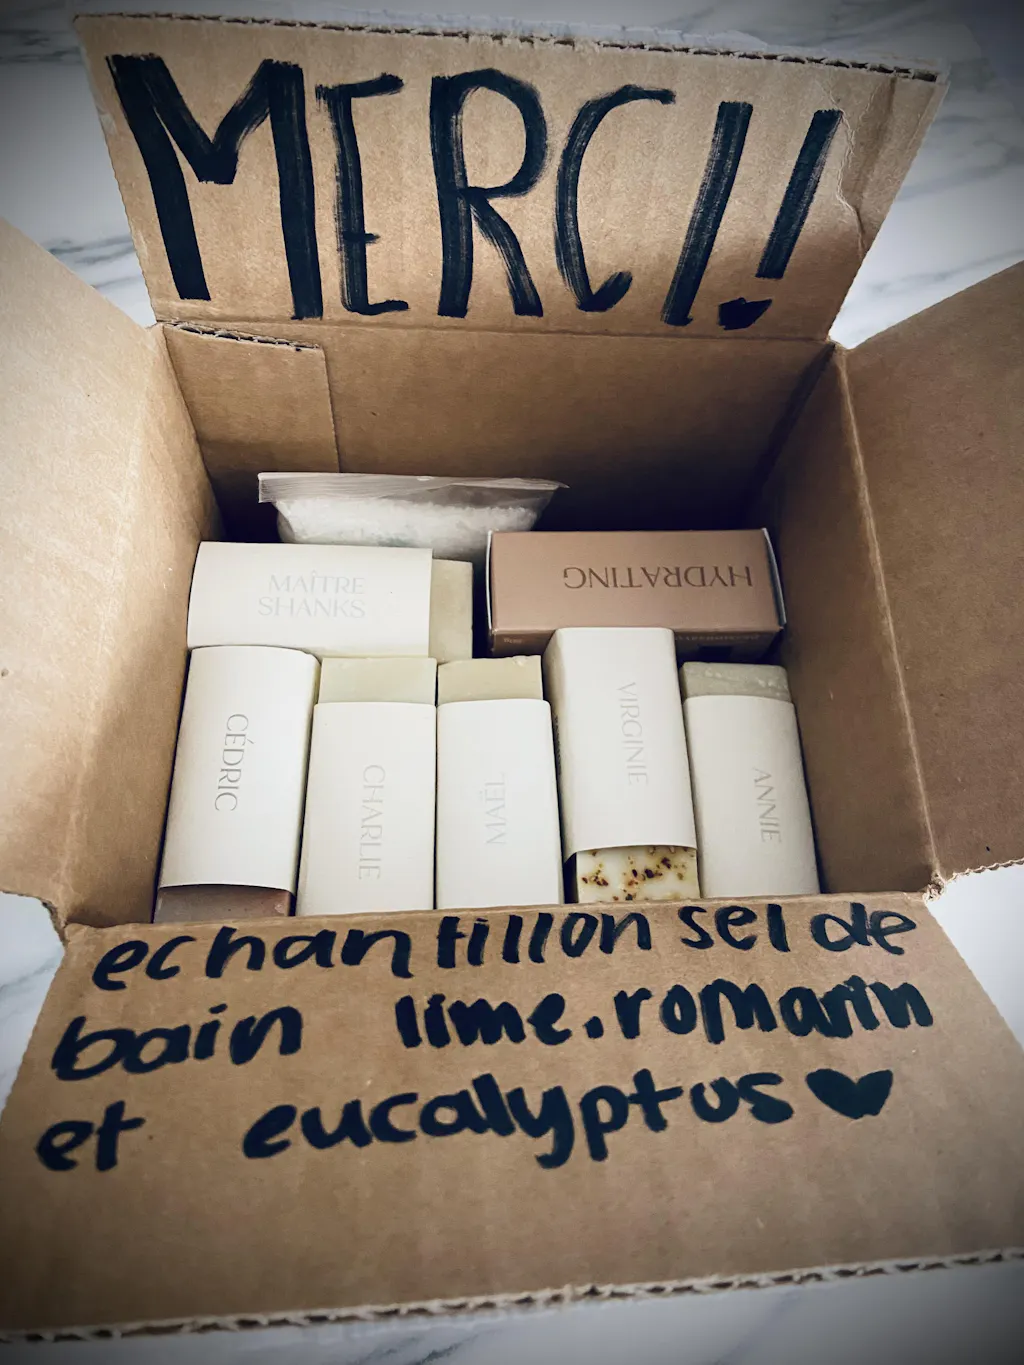 MERCI!
MAÎTRE
SHANKS
HYDRATING
CÉDRIC
CHARLIE
MAËL
VIRGINIE
ANNIE
echantillon sel de
bain lime.romarin
et eucalyptus